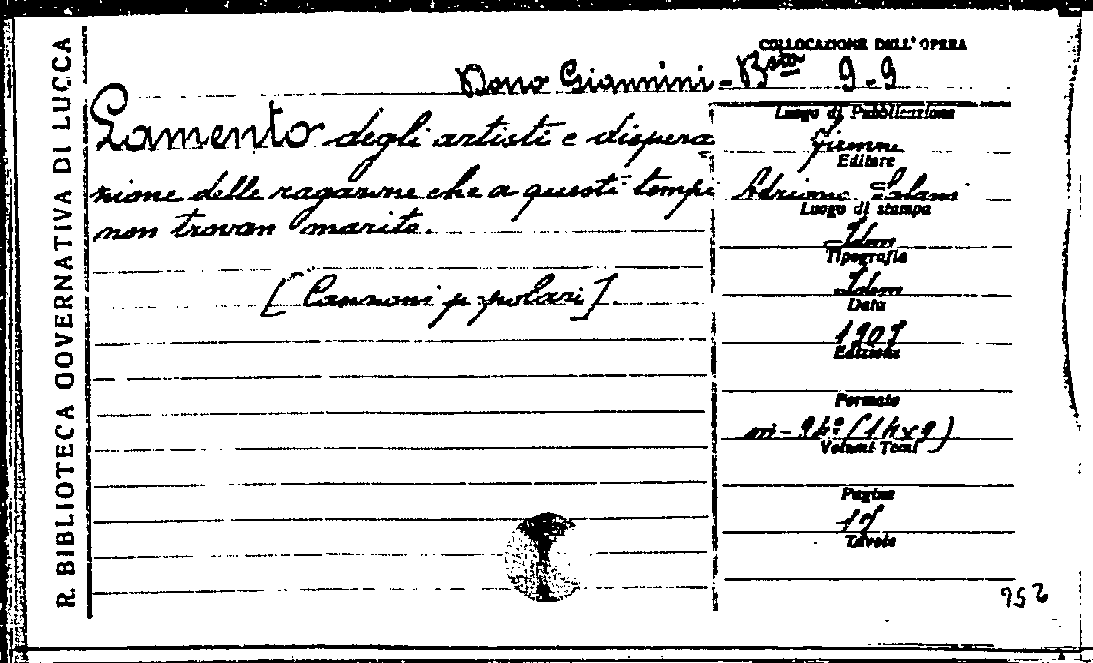 R. BIBLIOTECA GOVERNATIVA DI LUCCA
COLLOCAZIONE DELL'OPERA
Dono Giannini - Bsta 9.9
Lamento degli artisti e dispera
zione delle ragazze che a questi tempi
non trovan marito.
[Canzoni popolari].
Luogo di Pubblicazione
Firenze
Editore
Adriano Salani
Luogo di stampa
Idem
Tipografia
Idem
Data
Edizione
Formato
Volumi Tomi
Pagine
Tavole
952